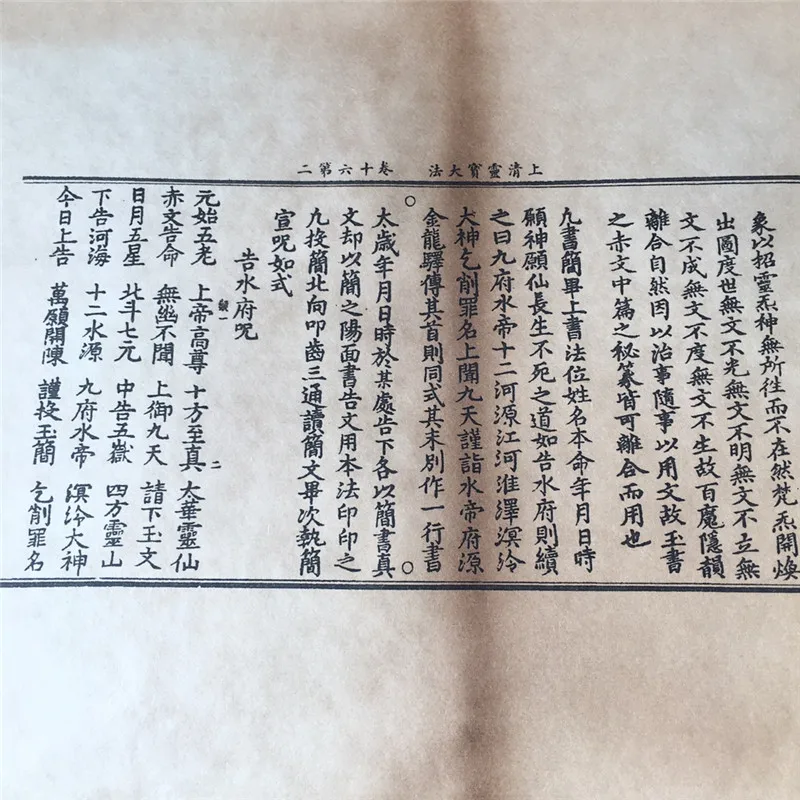 上清靈寶大法　卷十六第二
象以招靈炁神無所往而不在然梵炁開煥
出圖度世無文不光無文不明無文不立無
文不成無文不度無文不生故百魔隱韻
離合自然因以治事隨事以用文故玉書
之赤文中篇之秘篆皆可離合而用也
凡書簡畢上書法位姓名本命年月日時
願神願仙長生不死之道如告水府則續
之曰九府水帝十二河源江河淮澤溟泠
大神乞削罪名上聞九天謹詣水帝府源
金龍驛傳其首則同式其末別作一行書
太歲年月日時於某處告下各以簡書真
文却以簡之陽面書告文用本法印印之
凡投簡北向叩齒三通讀簡文畢次執簡
宣呪如式
告水府呪
元始五老　上帝高尊　十方至真　太華靈仙
赤文告命　無幽不聞　上御九天　請下玉文
日月五星　北斗七元　中告五嶽　四方靈山
下告河海　十二水源　九府水帝　溟泠大神
今日上告　萬願開陳　謹投玉簡　乞削罪名
二